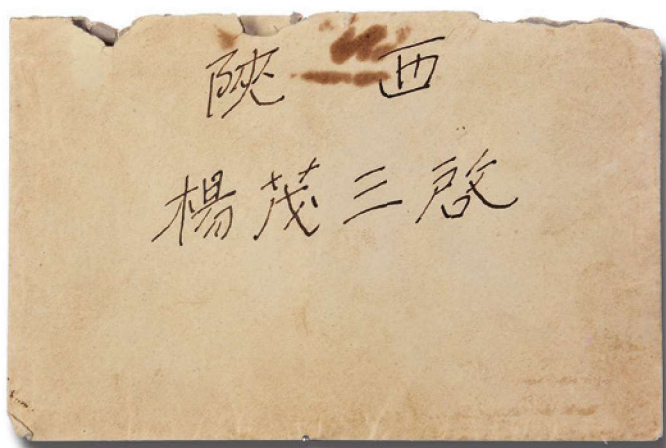 陝西
楊茂三啟